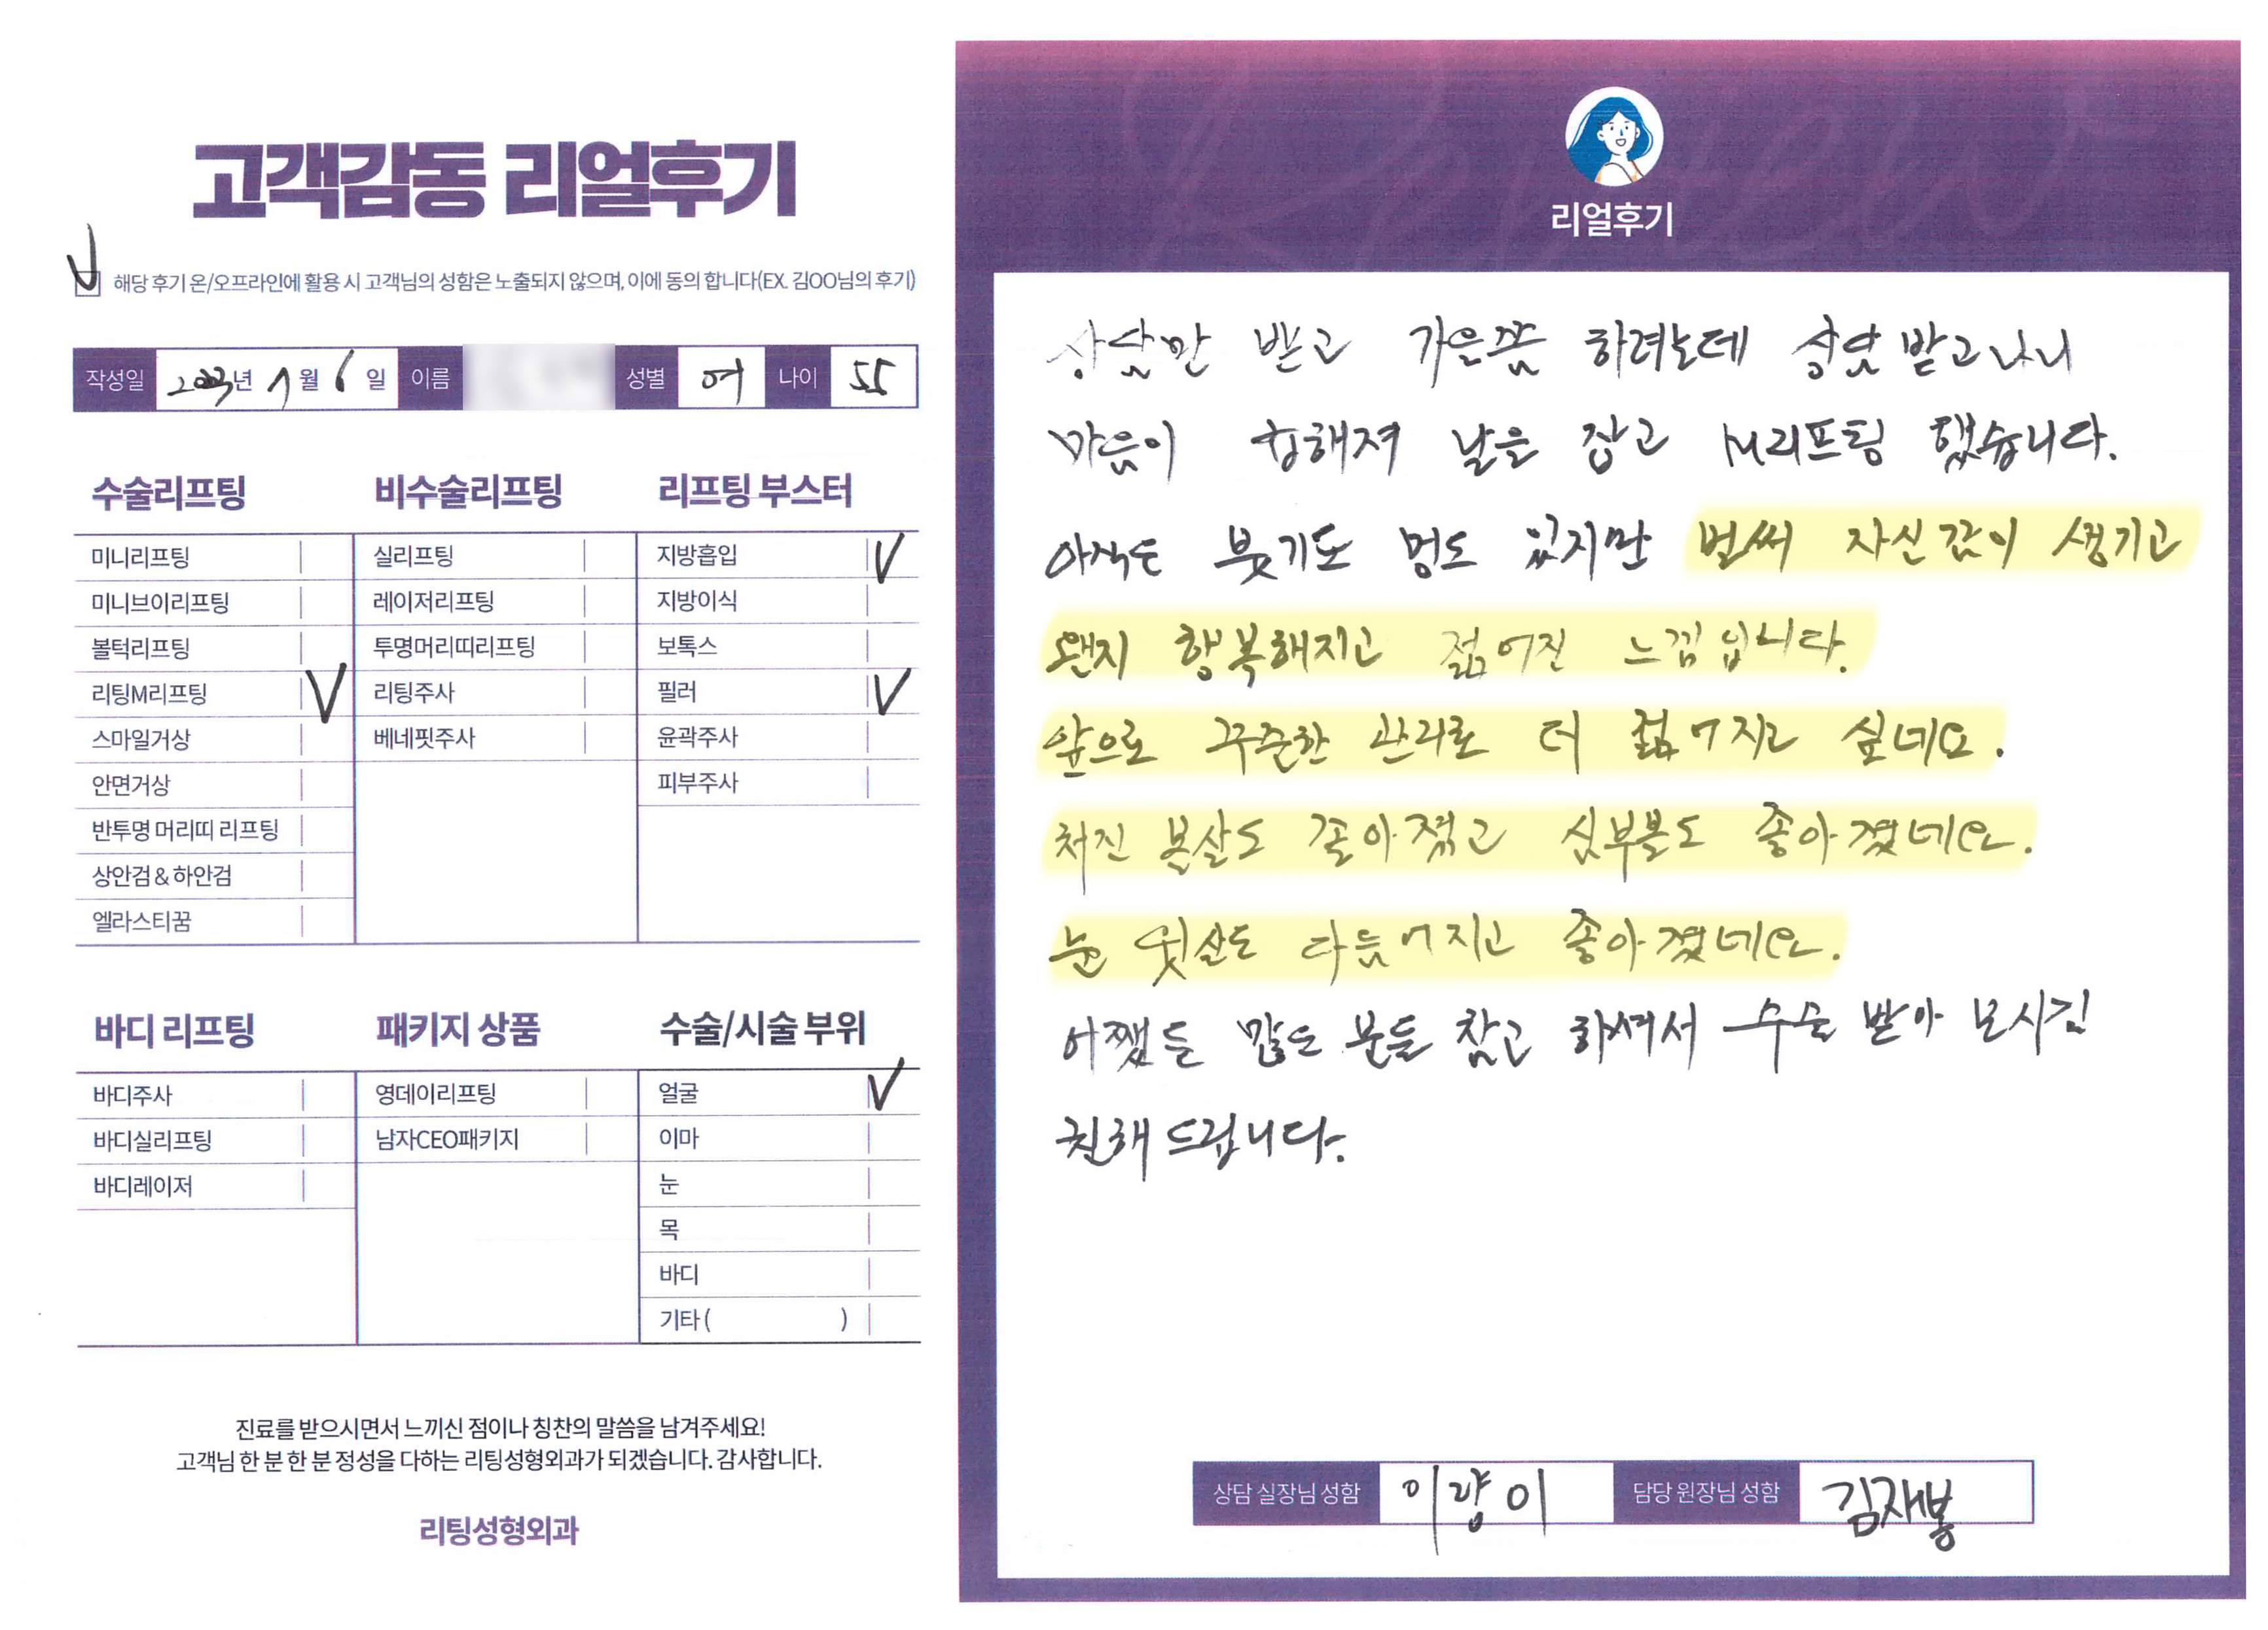 고객감동 리얼후기
해당 후기 온/오프라인에 활용 시 고객님의 성함은 노출되지 않으며, 이에 동의 합니다(EX. 김OO님의 후기)
작성일 2023년 1월 6일 이름 성별 여 나이 55
수술리프팅
미니리프팅
미니브이리프팅
볼턱리프팅
리팅M리프팅 V
스마일거상
안면거상
반투명 머리띠 리프팅
상안검 & 하안검
엘라스티꿈
비수술리프팅
실리프팅
레이저리프팅
투명머리띠리프팅
리팅주사
베네핏주사
리프팅 부스터
지방흡입 V
지방이식
보톡스
필러 V
윤곽주사
피부주사
바디 리프팅
바디주사
바디실리프팅
바디레이저
패키지 상품
영데이리프팅
남자CEO패키지
수술/시술 부위
얼굴 V
이마
눈
목
바디
기타 ( )
진료를 받으시면서 느끼신 점이나 칭찬의 말씀을 남겨주세요!
고객님 한 분 한 분 정성을 다하는 리팅성형외과가 되겠습니다. 감사합니다.
리팅성형외과
리얼후기
상담만 받고 가은쯤 하려는데 상담 받고나니
마음이 급해져 날을 잡고 M리프팅 했습니다.
아직은 붓기도 멍도 있지만 벌써 자신감이 생기고
왠지 행복해지고 젊어진 느낌입니다.
앞으로 꾸준한 관리로 더 젊어지고 싶네요.
처진 볼살도 좋아졌고 심부볼도 좋아졌네요.
눈 윗살도 다듬어지고 좋아졌네요.
어쨌든 많은 분들 참고 하셔서 수술 받아 보시길
권해드립니다.
상담 실장님 성함 이량이 담당 원장님 성함 김재봉